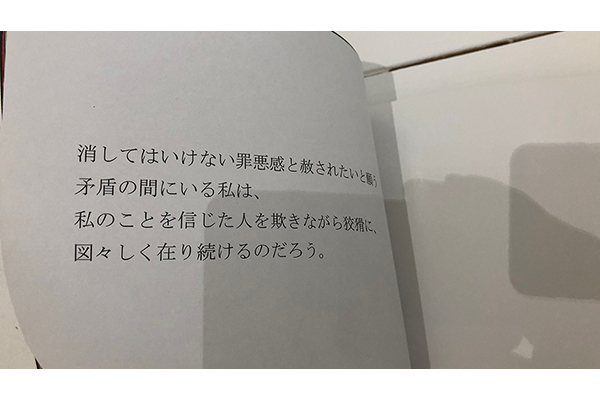 消してはいけない罪悪感と赦されたいと願う
矛盾の間にいる私は、
私のことを信じた人を欺きながら狡猾に、
図々しく在り続けるのだろう。